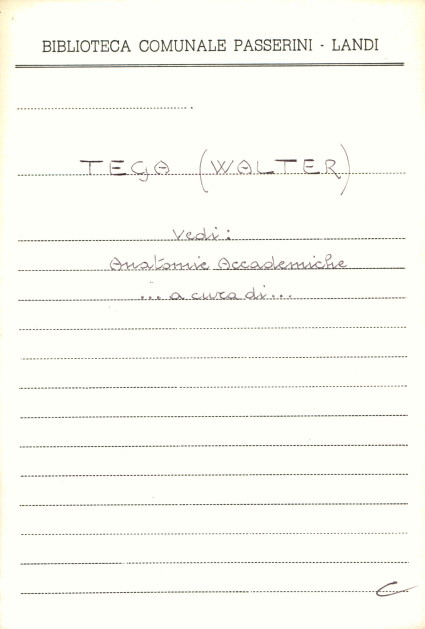 BIBLIOTECA COMUNALE PASSERINI - LANDI
TEGA (WALTER)
Vedi:
Anatomie Accademiche
... a cura di ...
C